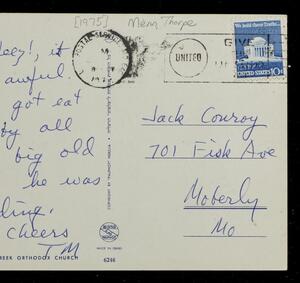 [1975] Merry Thorpe
GIVE
UNITED
UNITED STATES 10c
Jeez!, it
awful.
got eat
by all
big old
he was
ding.
cheers
TM
Jack Conroy
701 Fisk Ave
Moberly
Mo
MADE IN ISRAEL
REEK ORTHODOX CHURCH
6246